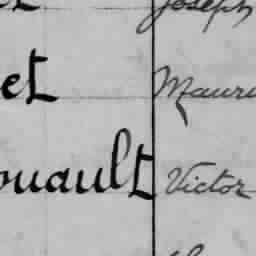 Joseph
et Mauri
ouault Victor